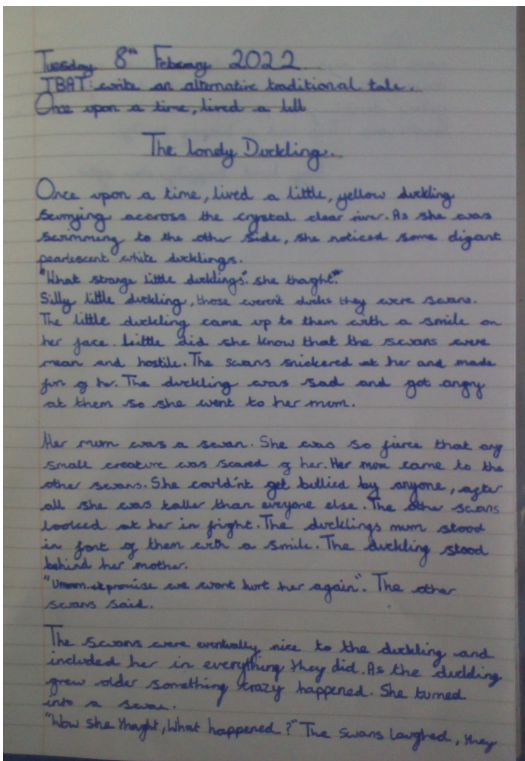 Tuesday 8th Febuary 2022
TBAT: write an alternative traditional tale.
Once upon a time, lived a litl
The Lonely Duckling.
Once upon a time, lived a little, yellow duckling
scurrying accoross the crystal clear river. As she was
swimming to the other side, she noticed some eligant
pearlescent white ducklings.
"What strange little ducklings." she thaght"
Silly little duckling, those werent ducks they were swans.
The little duckling came up to them with a smile on
her face. Little did she know that the swans were
mean and hostile. The swans snickered at her and made
fun of her. The duckling was sad and got angry
at them so she went to her mum.
Her mum was a swan. She was so fierce that any
small creature was scared of her. Her mum came to the
other swans. She could'nt get bullied by anyone, after
all she was taller than everyone else. The other swans
looked at her in fright. The ducklings mum stood
in font of them with a smile. The duckling stood
behind her mother.
"Ummm.. promise we wont hurt her again". The other
swans said.
The swans were eventually nice to the duckling and
included her in everything they did. As the duckling
grew older something crazy happened. She turned
into a swan.
"Wow she thaght, What happened?" The swans laughed, they